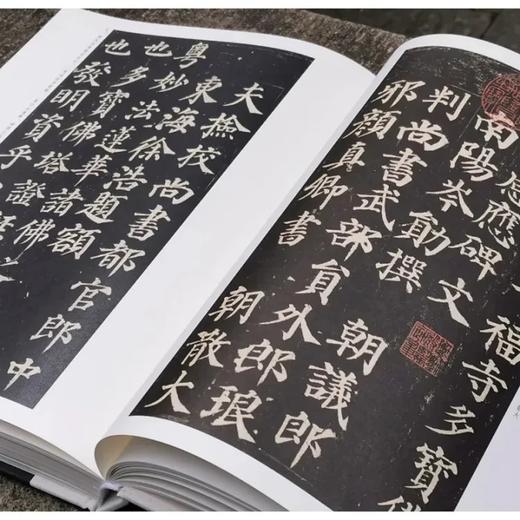 福寺多寶佛
感應碑文
南陽岑勛撰朝議郎
判尚書武部員外郎琅
邪顏真卿書朝散大
夫撿校尚書都官郎中
東海徐浩題額
粵妙法蓮華諸佛
也多寶佛塔證
也發明資乎